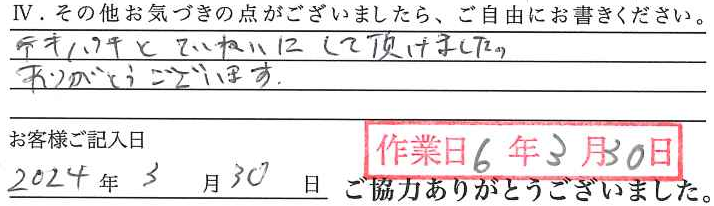 Ⅳ．その他お気づきの点がございましたら、ご自由にお書きください。
テキパキと ていねいに して頂けました。
ありがとうございます.
お客様ご記入日
作業日 6 年 3 月 30 日
2024 年 3 月 30 日 ご協力ありがとうございました。